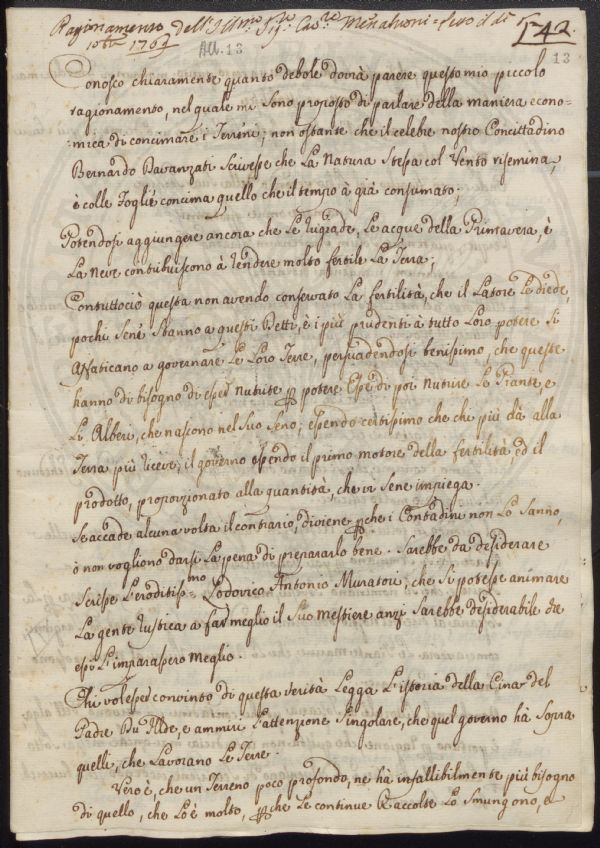 Ragionamento dell'Ill.mo Sig.re Cav.re Menabuoni = letto il dì
1763
142.
All. 13
13
Conosco chiaramente quanto debole dovrà parere questo mio piccolo
ragionamento, nel quale mi sono proposto di parlare della maniera econo-
:mica di concimare i Terreni; non ostante che il celebre nostro Concittadino
Bernardo Davanzati Scrivesse che La Natura Stessa col Vento risemina,
è colle foglie concima quello che il tempo à già consumato;
Potendosi aggiungere ancora che Le rugiade, Le acque della Primavera, è
La neve contribuiscono à rendere molto fertile La Terra;
Contuttociò questa non avendo conservato La fertilità, che il Fatore Le diede,
pochi Sene Stanno a questi Detti, è i più prudenti à tutto Loro potere Si
Affaticano a governare Le Loro Terre, persuadendosi benissimo, che queste
hanno di bisogno di esser nutrite p potere Esse di poi nutrire Le Piante, e
Li Alberi, che nascono nel Suo Seno; essendo certissimo che chi più dà alla
Terra più riceve; il governo essendo il primo motore della fertilità, ed il
prodotto, proporzionato alla quantità, che vi Sene impiega.
Se accade alcuna volta il contrario, diviene pche i Contadini non Lo Sanno,
ò non vogliono darsi La pena di prepararlo bene. Sarebbe da desiderare
Scrisse L'eroditiss.mo Lodovico Antonio Muratori, che Si potesse animare
La gente rustica a far meglio il Suo mestiere anzi Sarebbe desiderabile che
essi L'imparassero Meglio.
Chi vol'esser convinto di questa verità Legga L'istoria della Cina del
Padre Du Alde, e ammiri L'attenzione Singolare, che quel governo hà Sopra
quelli, che Lavorano Le Terre.
Vero è, che un Terreno poco profondo, ne hà infallibilmente più bisogno
di quello, che Lo è molto, pche Le continue Raccolte Lo Smungono, e